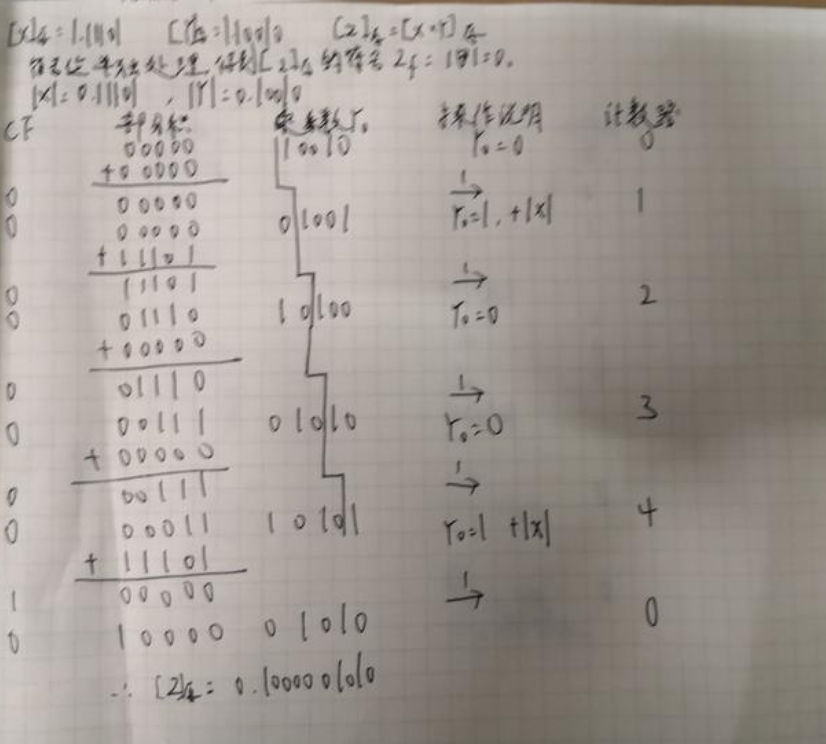 [X]原=1.11101 [Y]原=1.10010 [Z]原=[X·Y]原
符号位单独处理,得到[Z]原的符号 Zf=1⊕1=0.
|X|=0.11101 , |Y|=0.10010
CF 部分积 乘数Y0 操作说明 计数器
00000 10010 Y0=0 0
+00000
0 00000 1→ 1
0 00000 01001 Y0=1,+|X|
+11101
0 11101 1→
0 01110 10100 Y0=0 2
+00000
0 01110 1→
0 00111 01010 Y0=0 3
+00000
0 00111 1→
0 00011 10101 Y0=1 +|X| 4
+11101
1 00000 1→
0 10000 01010 0
∴ [Z]原=0.1000001010